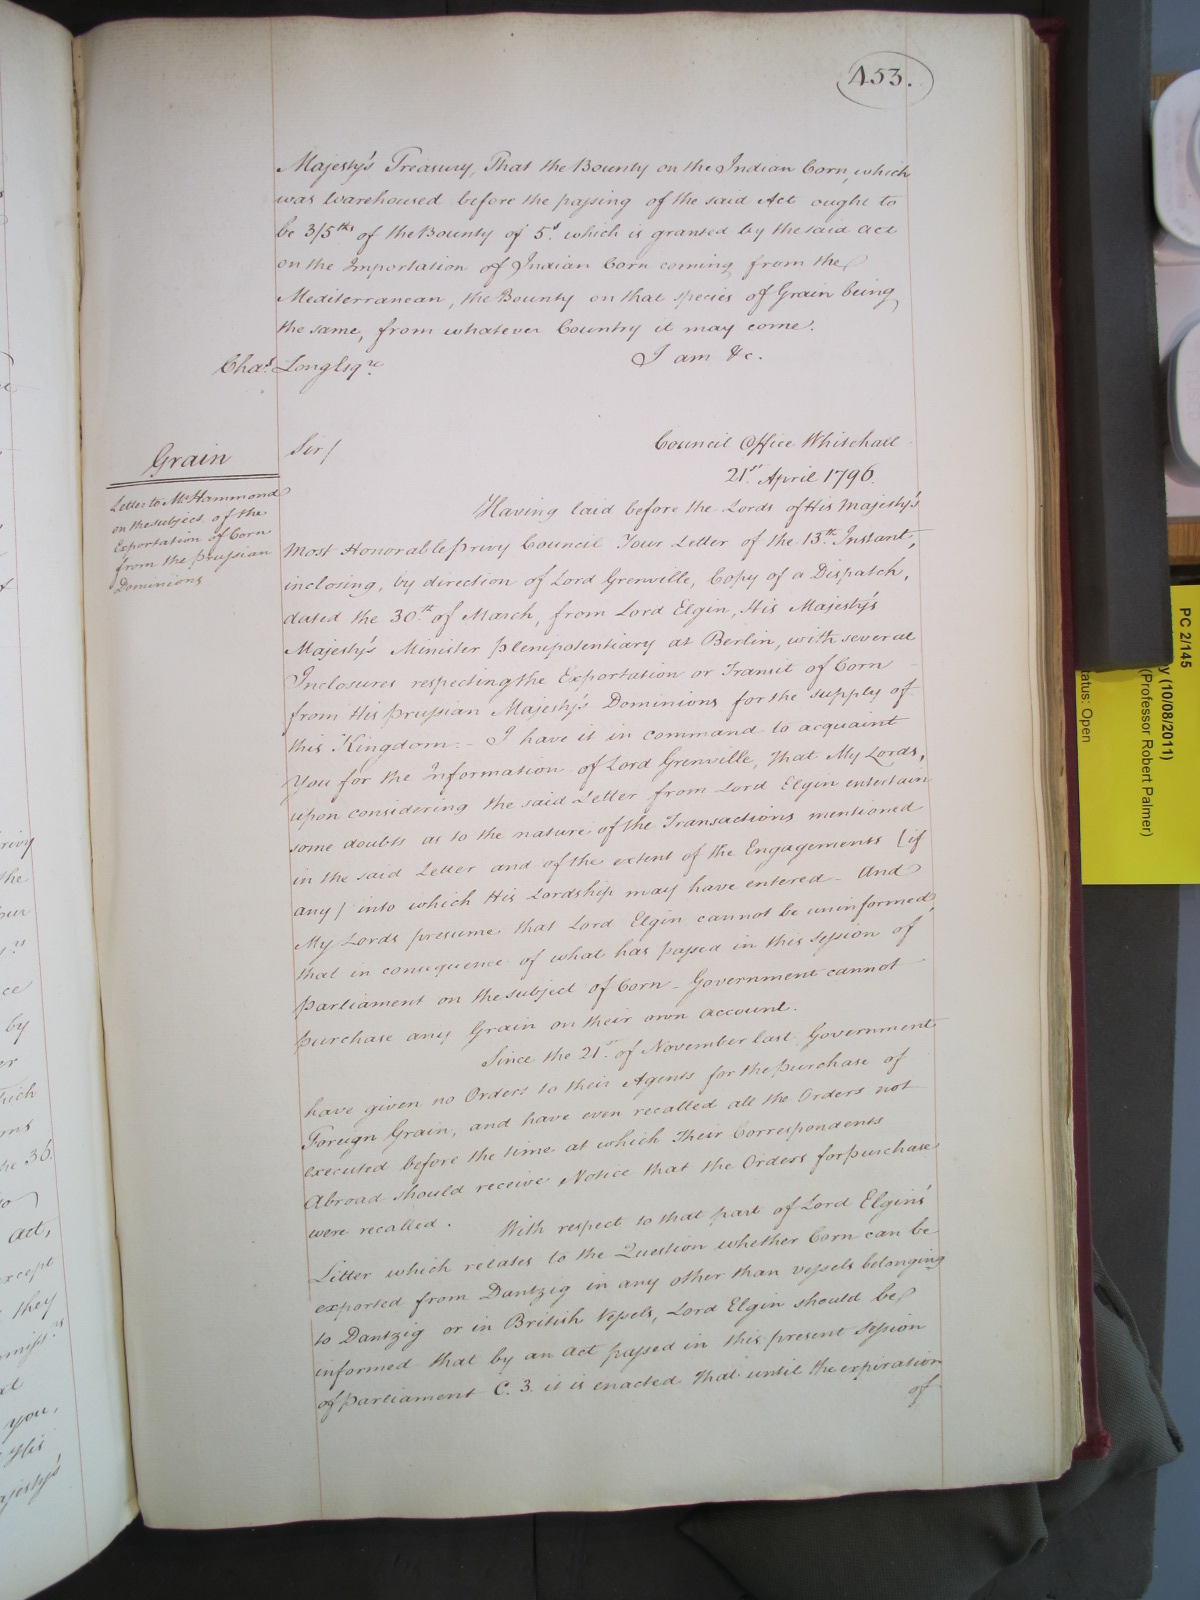 453.
Majesty's Treasury, That the Bounty on the Indian Corn, which
was Warehoused before the passing of the said Act ought to
be 3/5ths of the Bounty of 5s. which is granted by the said Act
on the Importation of Indian Corn coming from the
Mediterranean, the Bounty on that species of Grain being
the same, from whatever Country it may come.
I am &c.
Chas. Long Esqre.
Grain
Letter to Mr. Hammond
on the subject of the
Exportation of Corn
from the Prussian
Dominions
Sir/
Council Office Whitehall
21st. April 1796.
Having laid before the Lords of His Majesty's
Most Honorable Privy Council Your Letter of the 13th. Instant,
inclosing, by direction of Lord Grenville, Copy of a Dispatch,
dated the 30th. of March, from Lord Elgin, His Majesty's
Majesty's Minister Plenipotentiary at Berlin, with several
Inclosures respecting the Exportation or Transit of Corn
from His Prussian Majesty's Dominions for the supply of
this Kingdom. - I have it in command to acquaint
You for the Information of Lord Grenville, That My Lords,
upon considering the said Letter from Lord Elgin entertain
some doubts as to the nature of the Transactions mentioned
in the said Letter and of the extent of the Engagements (if
any) into which His Lordship may have entered - And
My Lords presume that Lord Elgin cannot be uninformed,
that in consequence of what has passed in this Session of
Parliament on the subject of Corn - Government cannot
purchase any Grain on their own account.
Since the 21st. of November last Government
have given no Orders to their Agents for the purchase of
Foreign Grain, and have even recalled all the Orders not
executed before the time at which Their Correspondents
Abroad should receive Notice that the Orders for purchase
were recalled. With respect to that part of Lord Elgin's
Letter which relates to the Question whether Corn can be
exported from Dantzig in any other than Vessels belonging
to Dantzig or in British Vessels, Lord Elgin should be
informed that by an Act passed in this present Session
of Parliament C. 3. it is enacted That until the expiration
of
PC 2/145
(10/08/2011)
(Professor Robert Palmer)
tatus: Open